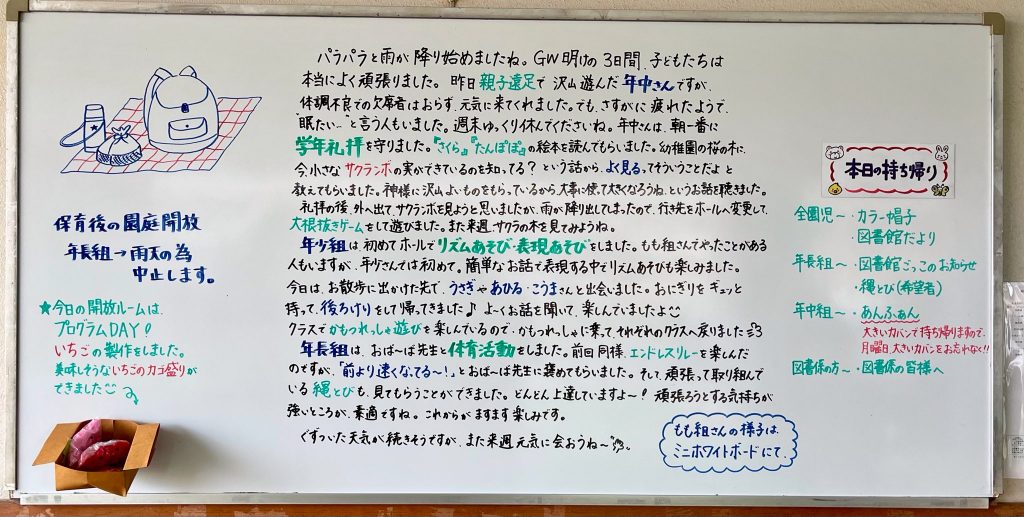 保育後の園庭開放
年長組→雨天の為
中止します。
★今日の開放ルームは、
プログラムDAY!
いちごの製作をしました。
美味しそうないちごのカゴ盛りが
できました
パラパラと雨が降り始めましたね。GW明けの3日間、子どもたちは
本当によく頑張りました。昨日親子遠足で沢山遊んだ年中さんですが、
体調不良での欠席者はおらず、元気に来てくれました。でも、さすがに疲れたようで、
"眠たい…"と言う人もいました。週末ゆっくり休んでくださいね。年中さんは、朝一番に
学年礼拝を守りました。『さくら』『たんぽぽ』の絵本を読んでもらいました。幼稚園の桜の木に、
今小さなサクランボの実ができているのを知ってる?という話から、よく見るってそういうことだよと
教えてもらいました。神様に沢山よいものをもらっているから、大事に使って大きくなろうね、というお話を聴きました。
礼拝の後、外へ出て、サクランボを見ようと思いましたが、雨が降り出してしまったので、行き先をホールへ変更して、
大根抜きゲームをして遊びました。また来週、サクラの木を見てみようね。
年少組は、初めてホールでリズムあそび・表現あそびをしました。もも組さんでやったことがある
人もいますが、年少さんでは初めて。簡単なお話で表現する中でリズムあそびも楽しみました。
今日は、お散歩に出かけた先で、うさぎやあひる・こうまさんと出会いました。おにぎりをギュッと
持って、後ろけりをして帰ってきました♪よ〜くお話を聞いて、楽しんでいましたよ
クラスでかもつれっしゃ遊びを楽しんでいるので、かもつれっしゃに乗ってそれぞれのクラスへ戻りました
年長組は、おば〜ば先生と体育活動をしました。前回同様、エンドレスリレーを楽しんだ
のですが、「前より速くなってる〜!」とおば〜ば先生に褒めてもらいました。そして、頑張って取り組んで
いる縄とびも、見てもらうことができました。どんどん上達していますよ〜!頑張ろうとする気持ちが
強いところが、素適ですね。これからがますます楽しみです。
ぐずついた天気が続きそうですが、また来週元気に会おうね〜。
もも組さんの様子は、
ミニホワイトボードにて、
本日の持ち帰り
全園児〜・カラー帽子
・図書館だより
年長組〜・図書館ごっこのお知らせ
・縄とび(希望者)
年中組〜・あんふぁん
大きいカバンで持ち帰りますので、
月曜日、大きいカバンをお忘れなく!!
図書係の方〜・図書係の皆様へ